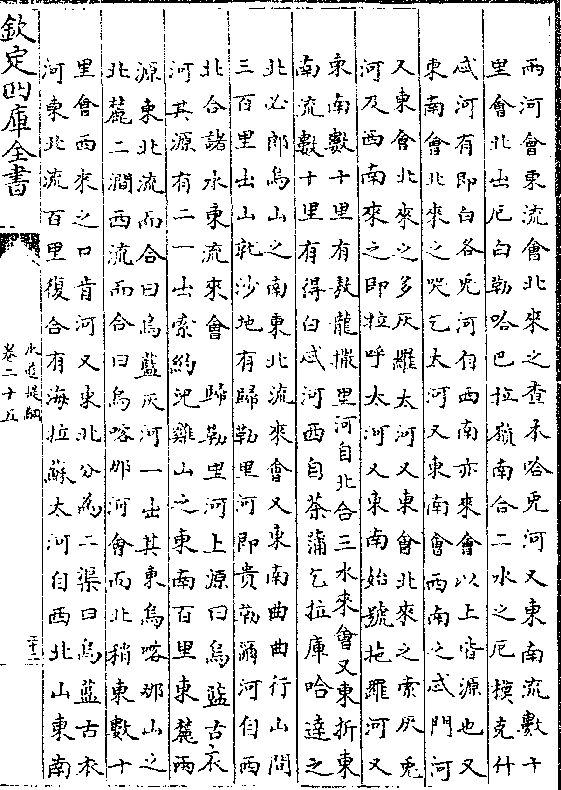 兩河會東流會北來之查禾哈兎河又東南流數十
里會北出厄白勒哈巴拉嶺南合二水之厄模克什
忒河有即白各兎河自西南亦來會以上皆源也又
東南會北來之哭乞太河又東南會西南之忒門河
又東會北來之多灰羅太河又東會北來之索灰兎
河及西南來之即拉呼太河又東南始號拖羅河又
東南數十里有敖龍撒里河自北合三水來會又東折東
南流數十里有得白忒河西自茶蒲乞拉庫哈達之
北必郎烏山之南東北流來會又東南曲曲行山間
三百里出山乾沙地有歸勒里河即貴勒爾河自西
北合諸水東流來會　歸勒里河上源曰烏藍古衣
河其源有二一出索約兒雞山之東南百里東麓兩
源東北流而合曰烏藍灰河一出其東烏喀那山之
北麓二澗西流而合曰烏喀那河會而北稍東數十
里會西來之口肯河又東北分為二渠曰烏藍古衣
河東北流百里復合有海拉蘇太河自西北山東南
欽定四庫全書
水道提綱
卷二十五